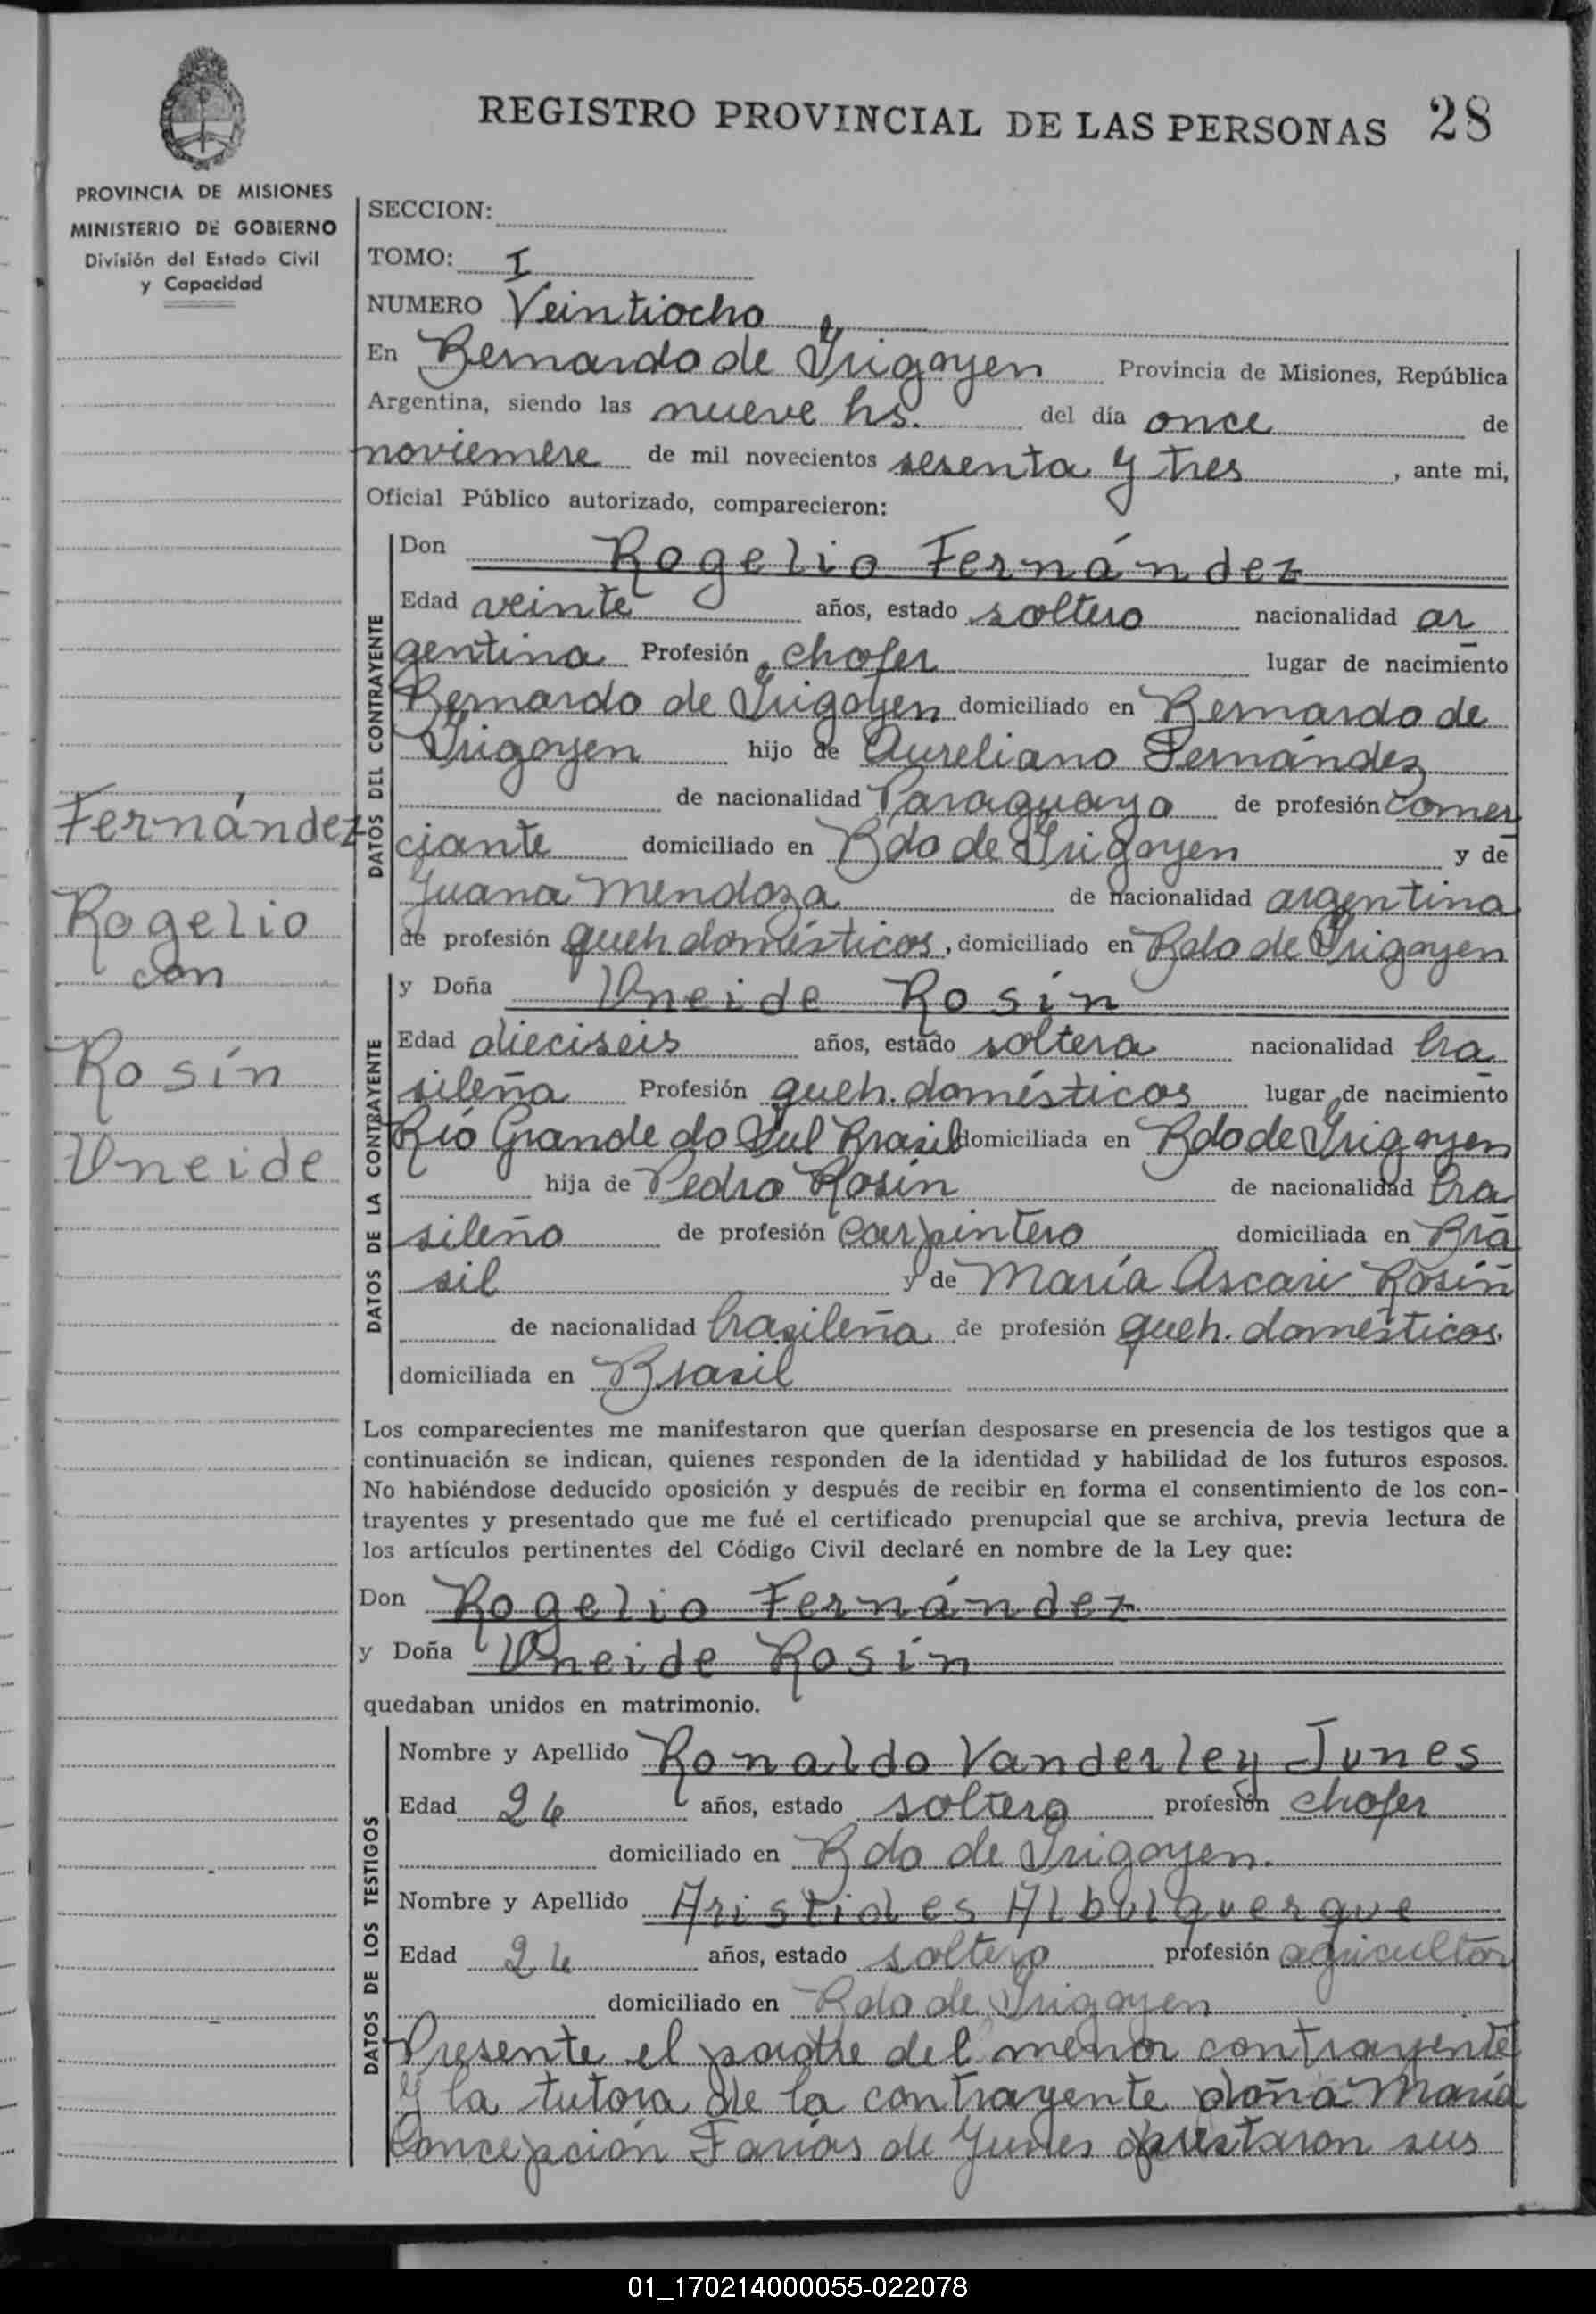 REGISTRO PROVINCIAL DE LAS PERSONAS 28
PROVINCIA DE MISIONES
MINISTERIO DE GOBIERNO
División del Estado Civil
y Capacidad
SECCION:
TOMO: I
NUMERO Veintiocho
En Bernardo de Irigoyen Provincia de Misiones, República
Argentina, siendo las nueve hs. del día once de
noviembre de mil novecientos sesenta y tres, ante mi,
Oficial Público autorizado, comparecieron:
DATOS DEL CONTRAYENTE
Don Rogelio Fernández
Edad veinte años, estado soltero nacionalidad ar
gentina Profesión chofer lugar de nacimiento
Bernardo de Irigoyen domiciliado en Bernardo de
Irigoyen hijo de Aureliano Fernández
de nacionalidad Paraguaya de profesión comer
ciante domiciliado en Bdo de Irigoyen y de
Juana Mendoza de nacionalidad argentina
de profesión queh. domésticos, domiciliado en Bdo de Irigoyen
Fernández
Rogelio
con
Rosín
Uneide
DATOS DE LA CONTRAYENTE
y Doña Uneide Rosín
Edad dieciseis años, estado soltera nacionalidad bra
sileña Profesión queh. domésticos lugar de nacimiento
Río Grande do Sul Brasil domiciliada en Bdo de Irigoyen
hija de Pedro Rosin de nacionalidad bra
sileño de profesión carpintero domiciliada en Bra
sil y de María Ascari Rosín
de nacionalidad brasileña de profesión queh. domésticos.
domiciliada en Brasil
Los comparecientes me manifestaron que querían desposarse en presencia de los testigos que a
continuación se indican, quienes responden de la identidad y habilidad de los futuros esposos.
No habiéndose deducido oposición y después de recibir en forma el consentimiento de los con-
trayentes y presentado que me fué el certificado prenupcial que se archiva, previa lectura de
los artículos pertinentes del Código Civil declaré en nombre de la Ley que:
Don Rogelio Fernández
y Doña Uneide Rosín
quedaban unidos en matrimonio.
DATOS DE LOS TESTIGOS
Nombre y Apellido Ronaldo Vanderley Junes
Edad años, estado soltero profesión chofer
domiciliado en Bdo de Irigoyen.
Nombre y Apellido Aristides Albulquerque
Edad años, estado soltero profesión agricultor
domiciliado en Bdo de Irigoyen
Presente el padre del menor contrayente
y la tutora de la contrayente doña María
Concepción Farías de Junes prestaron sus
01_170214000055-022078